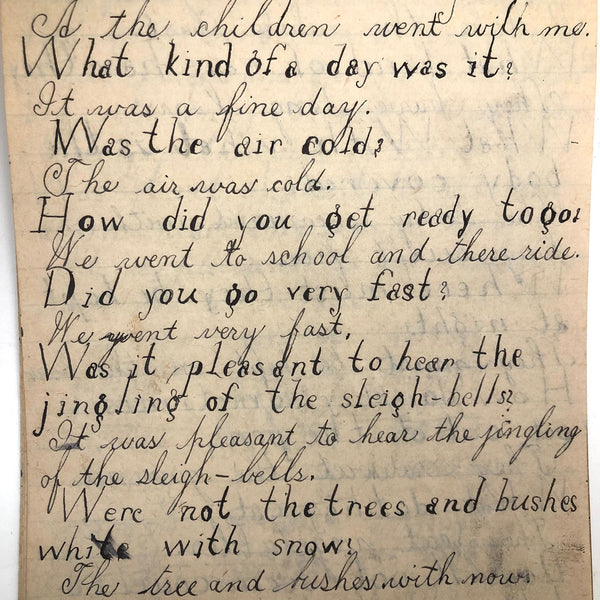 A the children went with me.
What kind of a day was it?
It was a fine day.
Was the air cold?
The air was cold.
How did you get ready to go?
We went to school and there ride.
Did you go very fast?
We went very fast.
Was it pleasant to hear the
jingling of the sleigh-bells?
It was pleasant to hear the jingling
of the sleigh-bells.
Were not the trees and bushes
white with snow?
The tree and bushes with now.